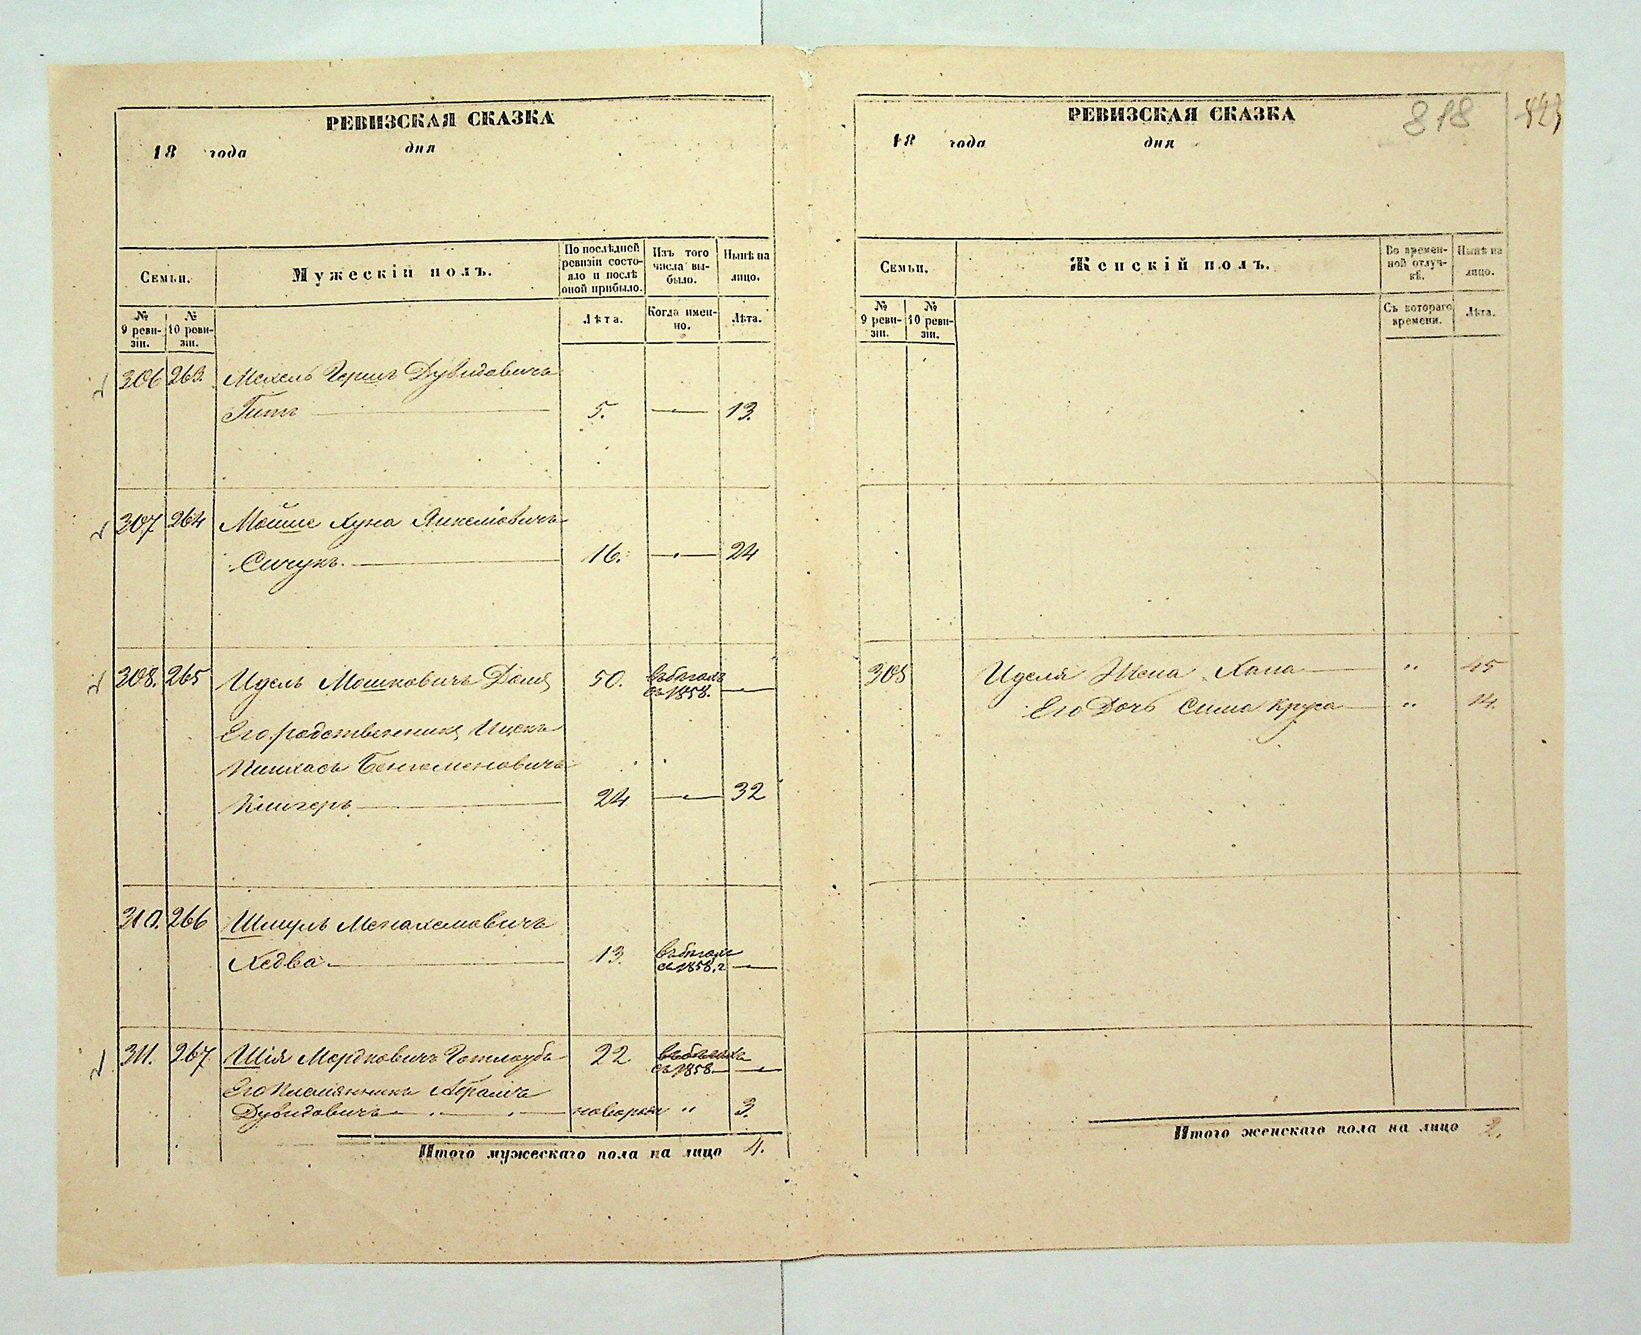 РЕВИЗСКАЯ СКАЗКА
18 года дня
Семьи.
Мужескій полъ.
По послѣдней ревизіи состояло и послѣ оной прибыло.
Изъ того числа выбыло.
Нынѣ на лицо.
№ 9 ревизіи.
№ 10 ревизіи.
Лѣта.
Когда именно.
Лѣта.
306 263. Мехель Герщъ Дувидовичъ
5. 13.
307 264 Мойше Хуна Янкелiовичъ
Сичукъ. 16. 24
308. 265 Идель Мошковичъ 50. Въ бѣгахъ
съ 1858.
Его родственникъ Ицекъ
Пинхасъ Бенiоменовичъ
24 32
310. 266 Шмуль Менахемовичъ
Хедва 13. Въ бѣгахъ
съ 1858. г
311. 267 Шія Мордковичъ Готлоубъ 22 Въ бѣгахъ
съ 1858
Его племянникъ Абрамъ
Дувидовичъ новорож " 3.
Итого мужескаго пола на лицо 4.
818 823
РЕВИЗСКАЯ СКАЗКА
18 года дня
Семьи.
Женскій полъ.
Во временной отлучкѣ.
Нынѣ на лицо.
№ 9 ревизіи.
№ 10 ревизіи.
Съ котораго времени.
Лѣта.
308 Иделя Жена Хана " 45
Его Дочь Сима Круса " 14.
Итого женскаго пола на лицо 2.